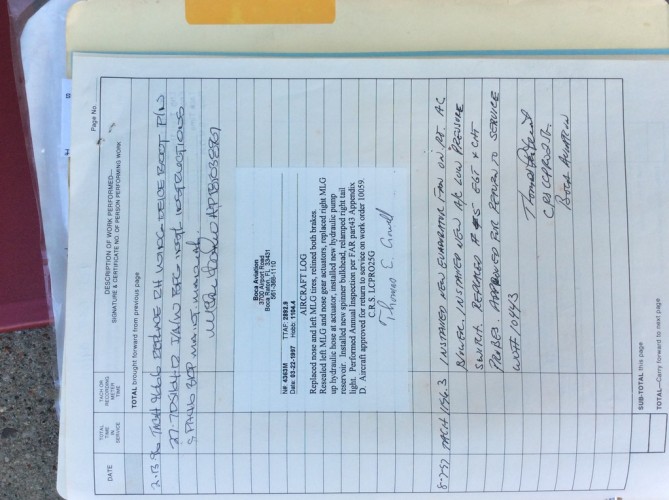 Page No.
DATE
TOTAL TIME IN SERVICE
TACH OR RECORDING METER TIME
DESCRIPTION OF WORK PERFORMED—
SIGNATURE & CERTIFICATE NO. OF PERSON PERFORMING WORK
TOTAL brought forward from previous page
2-13-96 TACH 966.6 REPLACE RH WING DEICE BOOT P/N
I/A/W BFG INSTL INSTRUCTIONS
Boca Aviation
3700 Airport Road
Boca Raton, FL 33431
561-368-1110
N#: 4363M TTAF: 2892.9
Date: 03-22-1997 Hobb: 1104.4
AIRCRAFT LOG
Replaced nose and left MLG tires, relined both brakes.
Resealed left MLG and nose gear actuators, replaced right MLG
up hydraulic hose at actuator, installed new hydraulic pump
reservoir. Installed new spinner bulkhead, relamped right tail
light. Performed Annual Inspection per FAR part43 Appendix
D. Aircraft approved for return to service on work order 10059.
C.R.S. LCPRO25G
Thomas E.
8-7-97 TACH 1156.3 INSTALLED NEW EVAPORATOR FAN ON A/C
INSTALLED NEW A/C LOW PRESSURE
SWITCH. REPLACED EGT & CHT
PROBES. APPROVED FOR RETURN TO SERVICE
WO# 10443
BOCA AVIATION
SUB-TOTAL this page
TOTAL—Carry forward to next page